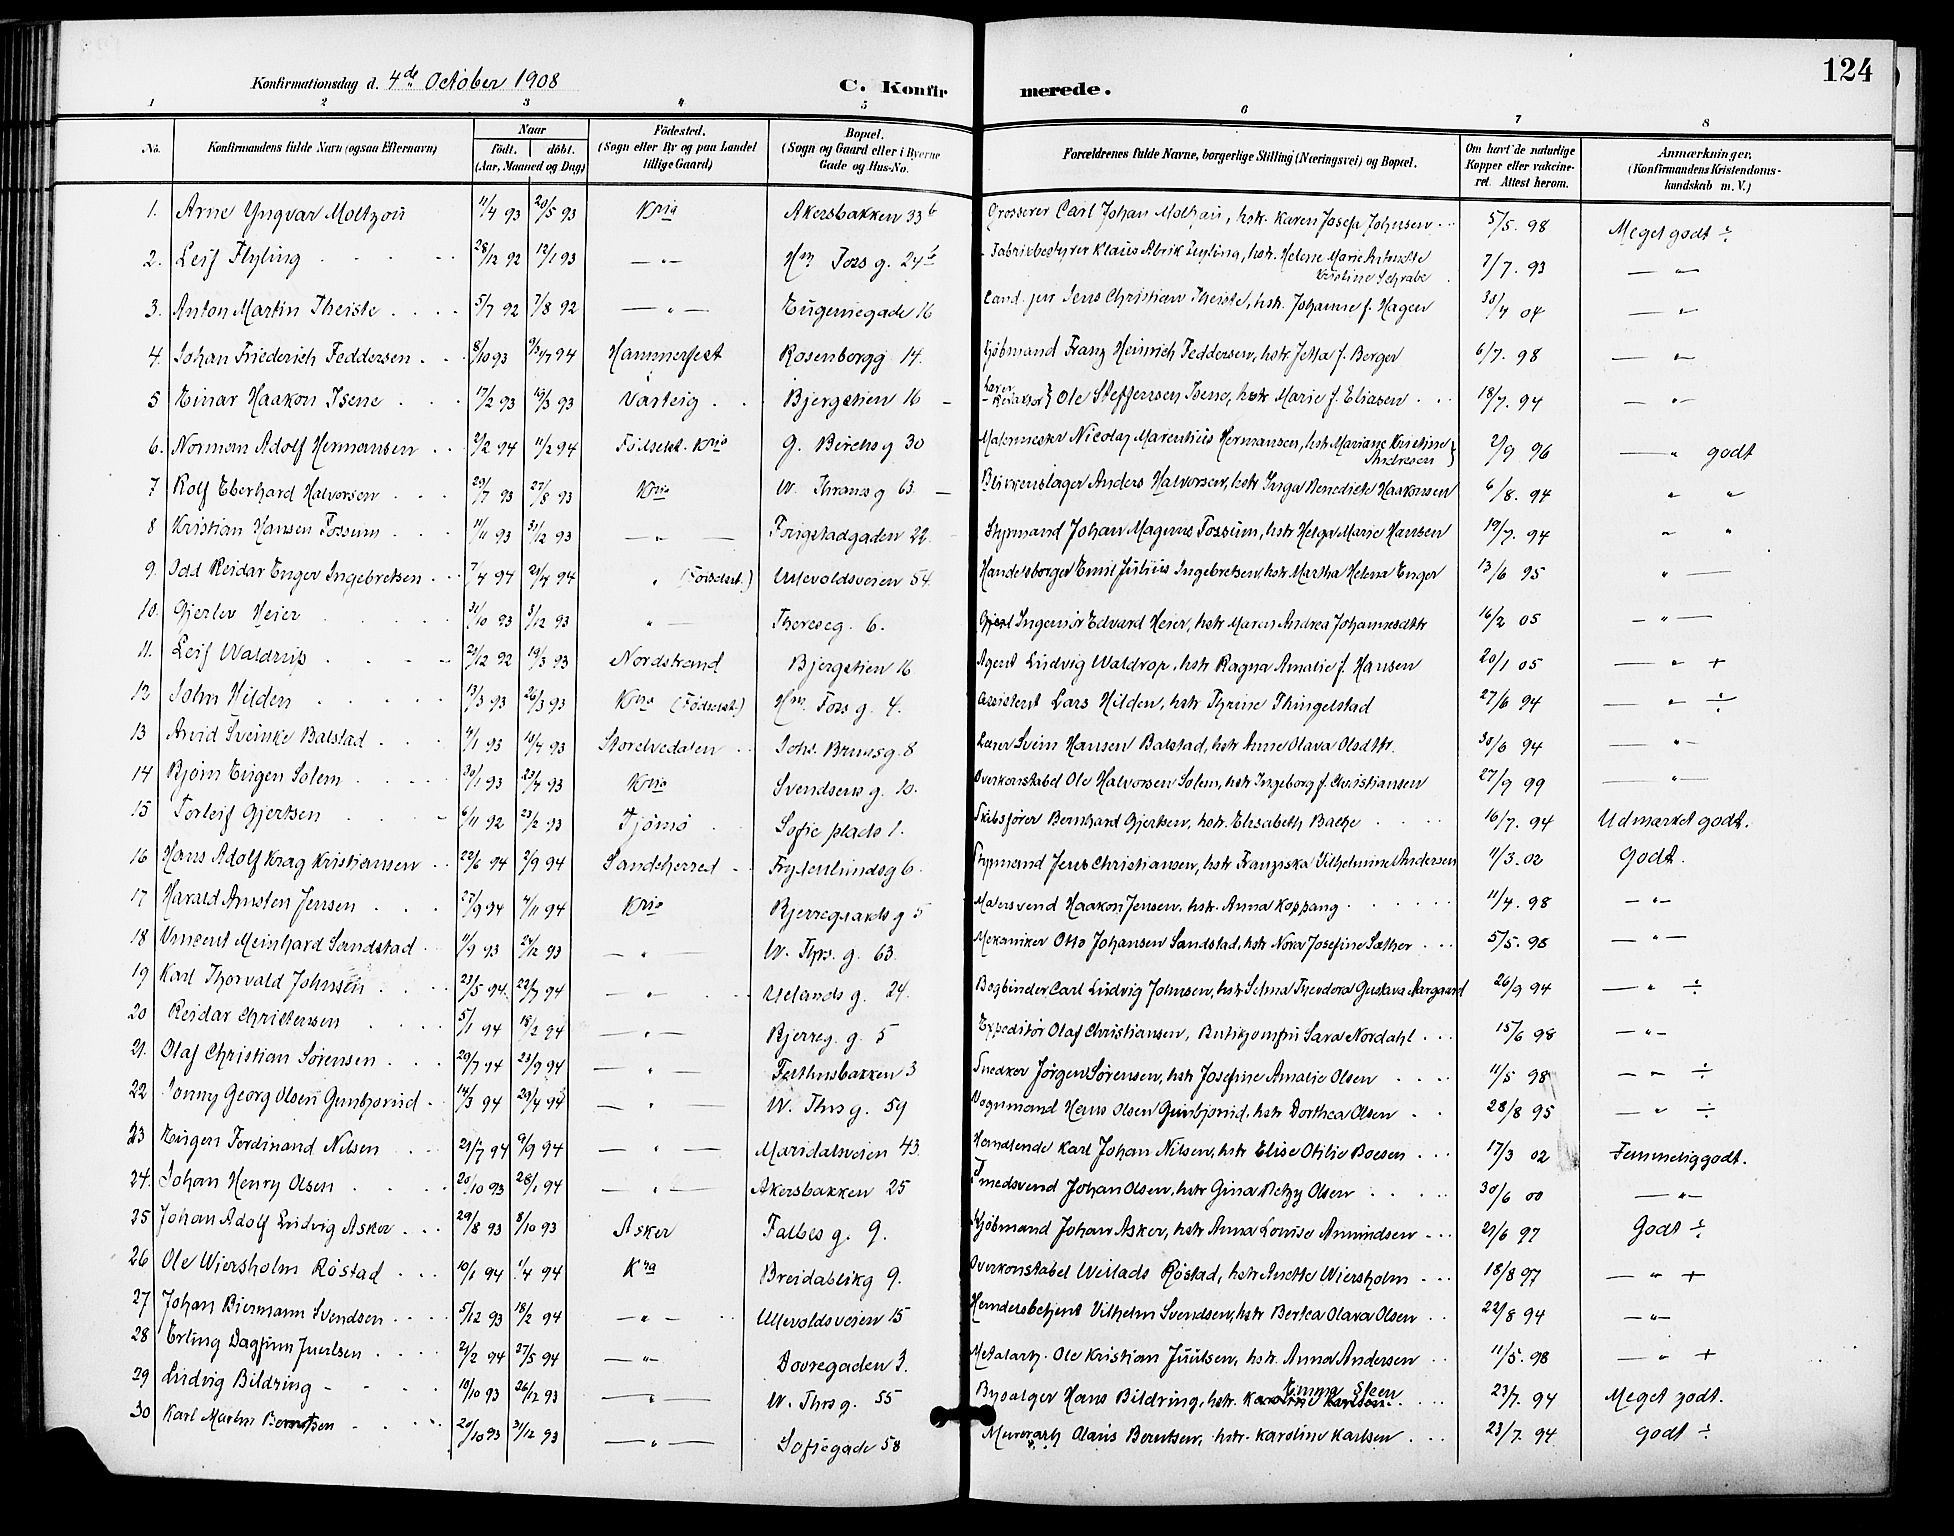 124
Konfirmationsdag d. 4de October 1908 C. Konfirmerede.
1 2 3 4 5 6 7 8
No. Konfirmandens fulde Navn (ogsaa Efternavn) Naar födt. döbt. (Aar, Maaned og Dag) Födested. (Sogn eller By og paa Landet tillige Gaard) Bopæl. (Sogn og Gaard eller i Byerne Gade og Hus-No. Forældrenes fulde Navne, borgerlige Stilling (Næringsvei) og Bopæl. Om havt de naturlige Kopper eller vakcineret. Attest herom. Anmærkninger. (Konfirmandens Kristendomskundskab m. V.)
1. Arne Yngvar Moltzau 11/4 93 28/5 93 Kria Akersbakken 33b Grosserer Carl Johan Moltzau, hstr. Karen Josefa Johnsen 5/5. 98 Meget godt ÷
2. Leif Flyling 28/12 92 12/1 93 —"— Hm Foss g. 24b Fabrikbestyrer Klaus Flyling, hstr. Helene Marie Kristine Schrabe 7/7. 93 —"—
3. Anton Martin Theiste 5/7 92 7/8 92 —"— Eugeniegade 16 Cand. jur Jens Christian Theiste, hstr. Johanne f. Hagen 30/4 04 —"—
4. Johan Friederich Feddersen 8/10 93 94 Hammerfest Rosenborgg 14. Kjöbmand Franz Heinrich Feddersen, hstr Jetta f. Berger 6/7. 98 —"—
5 Einar Haakon Isene 17/2 93 93 Varteig Bjergstien 16 Lærer Redaktør } Ole Steffensen Isene, hstr Marie f. Eliasen 18/7. 94 —"—
6. Norman Adolf Hermansen 2/2 94 11/2 94 Födselst. Kria G. Bierchs g 30 Malermester Nicolay Marentius Hermansen, hstr Mariane Kristine Andresen } 2/9 96 —"— godt
7 Rolf Eberhard Halvorsen 29/7 93 27/8 93 Kria W. Thranes g 63. Blikkenslager Anders Halvorsen, hstr Inga Benedicte Haakonsen 6/8. 94 " "
8 Kristian Hansen Fossum 11/11 93 31/12 93 —"— Frigstadgaden 22 Styrmand Johan Magnus Fossum, hstr Helga Marie Hansen 19/7. 94 " "
9. Odd Reidar Enger Ingebretsen 7/4 94 29/4 94 " (Fødselst.) Ullevoldsveien 54 Handelsborger Emil Julius Ingebretsen, hstr Martha Helena Enger 13/6 95 "—
10. Gjerlev Heier 31/10 93 3/12 93 "— Thereseg. 6. Ingeniør Edvard Heier, hstr Maren Andrea Johannesdtr 16/2 05 —"—
11. Leif Waldrup 29/12 92 19/3 93 Nordstrand Bjergstien 16 Agent Ludvig Waldrop, hstr Ragna Amalie f. Hansen 20/1 05 —"— +
12 John Hilden 13/3 93 26/3 93 Kria (Fødselst.) Hm Foss g. 4. Assistent Lars Hilden, hstr Thrine Thingelstad 27/6 94 —"— ÷
13 Arvid Sveinke Balstad 4/1 93 93 Storelvedalen Johs. Brunsg. 8 Lærer Svein Hansen Balstad, hstr Anne Olava Olsdttr. 30/6 94 —"—
14 Bjørn Eugen Solem 30/1 93 23/4 93 Kria Svendsens g. 10. Overkonstabel Ole Halvorsen Solem, hstr Ingeborg f. Christiansen 27/9 99 —"—
15 Torleif Gjertsen 6/11 92 23/2 93 Tjömö Sofie plads 1. Skibsfører Bernhard Gjertsen, hstr. Elisabeth Bache 16/7. 94 Udmærket godt.
16 Hans Adolf Krag Kristiansen 22/6 94 2/9 94 Sandeherred Frydenlundsg 6. Styrmand Jens Christiansen, hstr Franziska Vilhelmine Andersen 11/3. 02 Godt.
17 Harald Arnsten Jensen 27/9 94 4/11 94 Kria Bjerregaards g 5 Malersvend Haakon Jensen, hstr. Anna Koppang 11/4. 98 —"—
18 Vincent Meinhard Sandstad 11/9 93 24/12 93 —"— W. Thrs. g. 63. Mekaniker Otto Johansen Sandstad, hstr Nora Josefine Sæther 5/5. 98 —"—
19 Karl Thorvald Johnsen 23/5 94. 22/7 94 —"— Uelands g. 24. Bogbinder Carl Ludvig Johnsen, hstr Selma Theodora Gustava Aargaard 26/9 94 —"— ÷
20 Reidar Christensen 5/1 94 18/2 94 —"— Bjerreg. g. 5 Expeditör Olaf Christiansen, Butikjomfru Sara Nordahl 15/6 98 —"—
21. Olaf Christian Sörensen 29/7 94 23/9 94 —"— Felthusbakken 3 Snedker Jørgen Sørensen, hstr Josefine Amalie Olsen 11/5 98 —"— ÷
22 Conny Georg Olsen Gunbjørud 14/3 94 29/4 94 —"— W. Thrs g. 59 Vognmand Hans Olsen Gunbjørud, hstr Dorthea Olsen 28/8 95 —"— ÷
23 Eugen Ferdinand Nilsen 21/7 94 9/9 94 —"— Maridalsveien 43. Handlende Karl Johan Nilsen, hstr Elise Otilie Boesen 17/3 02 Temmelig godt.
24. Johan Henry Olsen 20/10 93 28/1 94 —"— Akersbakken 25 Smedsvend Johan Olsen, hstr Gina Betzy Olsen 30/6 00 —"—
25 Johan Adolf Ludvig Asker 29/8 93 8/10 93 Asker Falbes g. 9. Kjöbmand Johan Asker, hstr Anna Lovise Amundsen 21/6 97 Godt ÷
26 Ole Wiersholm Röstad 10/1 94 1/4 94 Kria Breidablikg 9. Overkonstabel Röstad, hstr Anette Wiersholm 18/8 97 —"— +
27 Johan Biermann Svendsen 5/12 93 18/2 94 —"— Ullevoldsveien 15 Handelsbetjent Vilhelm Svendsen, hstr Bertea Olava Olsen 22/8 94 —"—
28 Erling Dagfinn Juulsen 21/2 94 27/5 94 —"— Dovregaden 3. Metalarb. Ole Kristian Juulsen, hstr. Anna Andersen 11/5. 98 —"— +
29 Ludvig Bildring 18/10 93 26/12 93 —"— W. Thrs g. 55 Bysælger Hans Bildring, hstr. Karoline Karlsen. Emma Steen 23/7. 94 Meget godt.
30 Karl Martin Berntsen 20/10 93 31/12 93 —"— Sofiegade 58 Murerarb Olaus Berntsen, hstr. Karoline Karlsen 23/7. 94 godt ÷